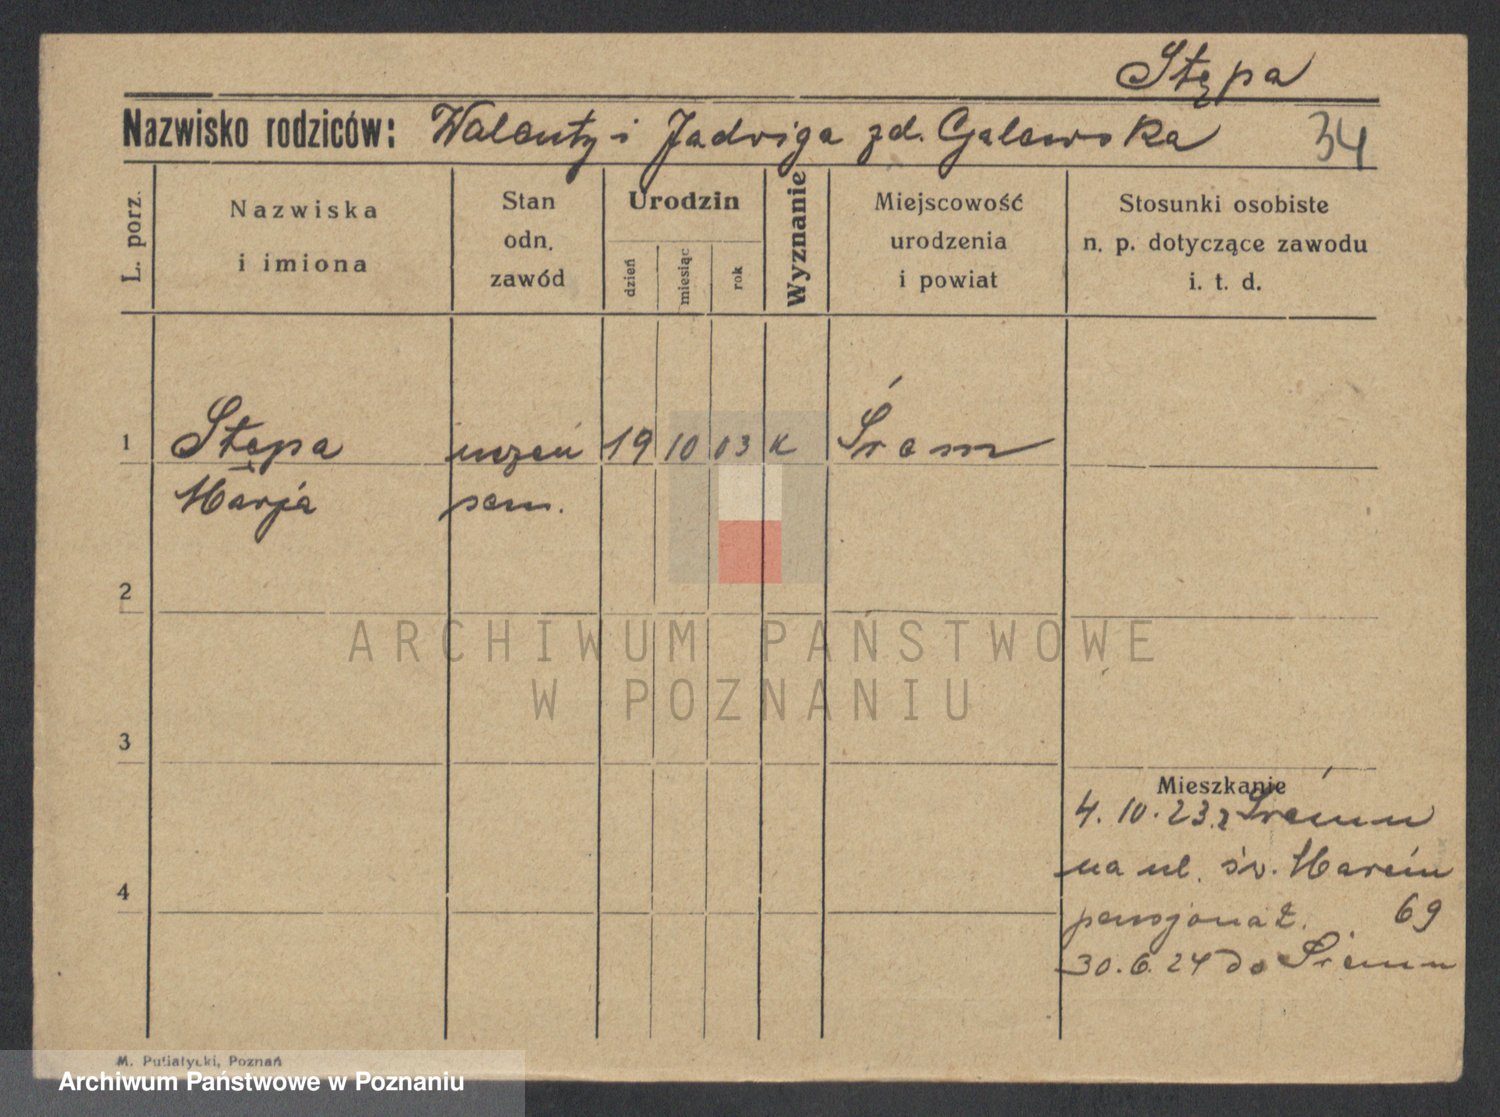 Stępa
Nazwisko rodziców: Walenty i Jadwiga zd. Galewska 34
L. porz.
Nazwiska
i imiona
Stan
odn.
zawód
Urodzin
dzień
miesiąc
rok
Wyznanie
Miejscowość
urodzenia
i powiat
Stosunki osobiste
n. p. dotyczące zawodu
i. t. d.
1 Stępa uczeń 19 10 03 k Śrem
Marja sem.
2
ARCHIWUM PAŃSTWOWE
W POZNANIU
3
Mieszkanie
4. 10. 23. z Śremu
na ul. św. Marcin
4
pensjonat. 69
30. 6. 24 do Śremu
M. Putiatycki, Poznań
Archiwum Państwowe w Poznaniu